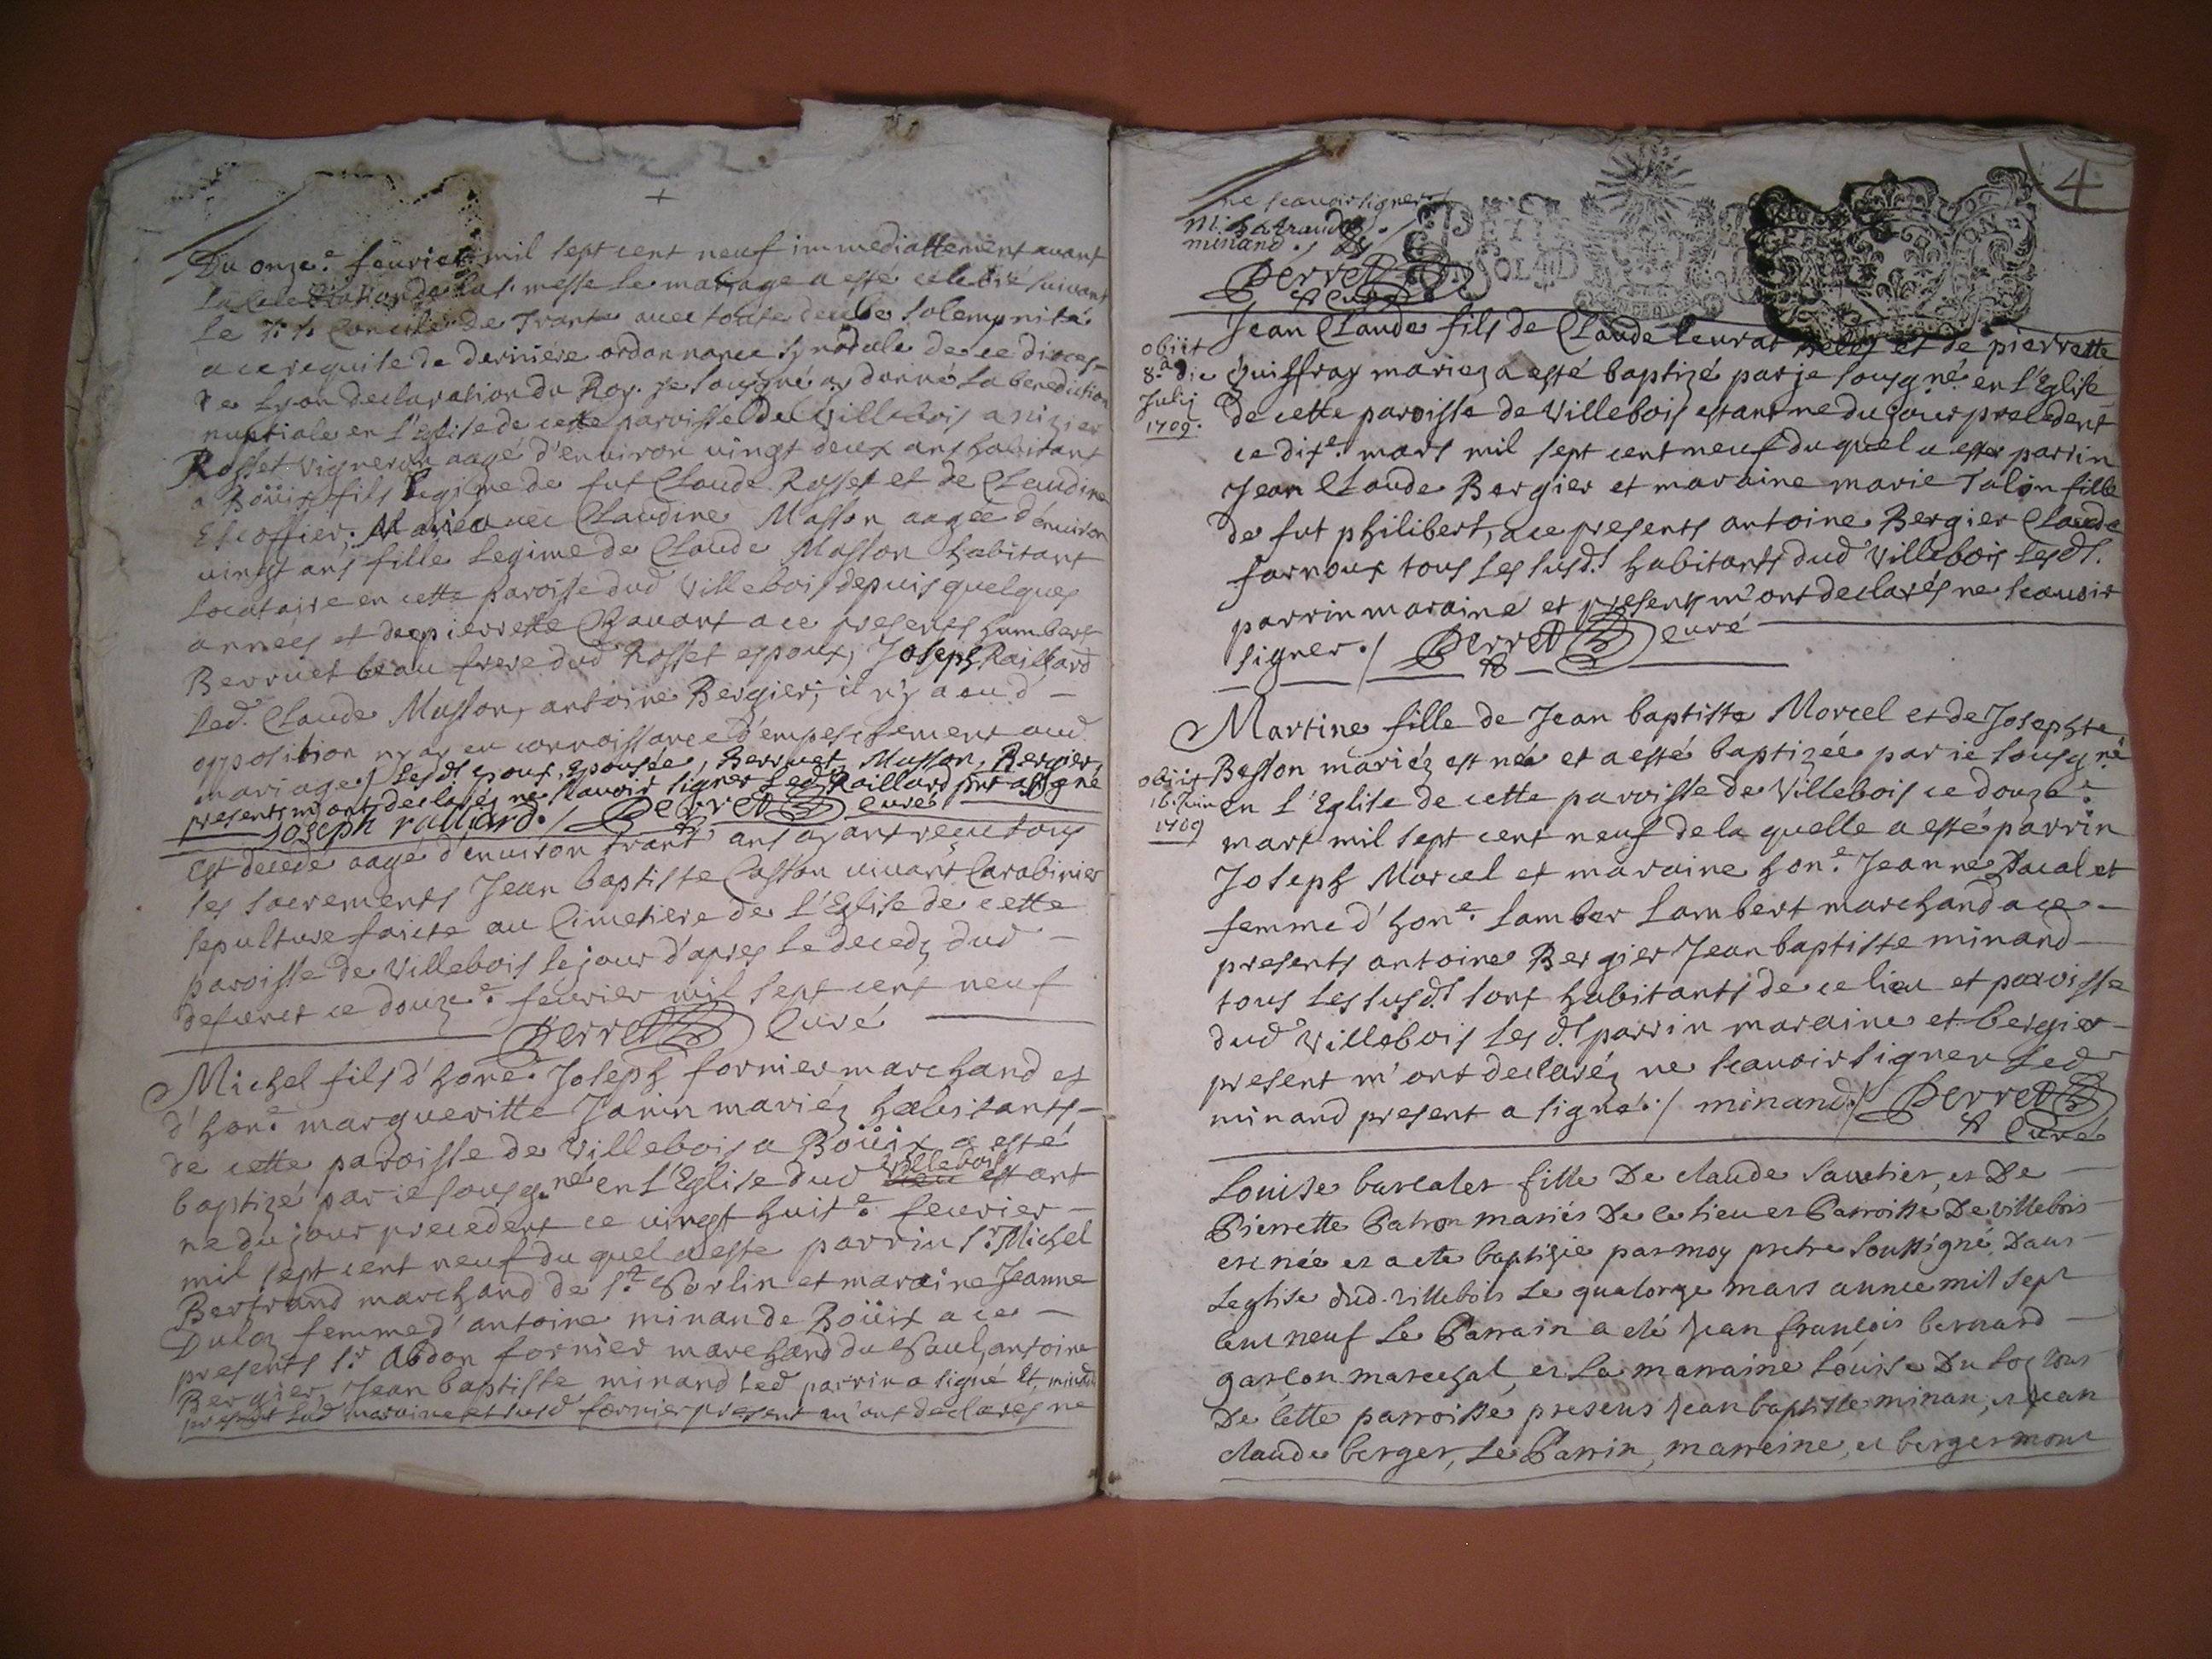 +
Du onze.e feurier mil sept cent neuf immediattement auant
la celebration de la s. messe le mariage a esté celebré suiuant
le st Concile de Trante auec toute deube solempnité
a ce requise de derniére ordonnance synodale de ce dioces-
de Lyon declaration du Roy. je sousigné ay donné la benediction
nuptiale en l'Eglise de cette paroisse de Villebois a nizier
Rosset vigneron aagé d'enuiron vingt deux ans habitant
a Boüix fils legime de fut Claude Rosset et de Claudine
Escoffier; Marié auec Claudine Masson aagée d'enuiron
vingt ans fille legime de Claude Masson habitant
locataire en cette paroisse dud Villebois depuis quelques
annees et de pierrette Chauant a ce presents humbert
Berruet beau frere dud Rosset espoux, Joseph Raillard
led. Claude Musson, antoine Bergier; il n'y a eu d'-
opposition ny ay eu connoissance d'empeschement aud.
mariage / lesd. espoux, epouse, Berruet Musson, Bergier,
presents m'ont declarés ne scauoir signer led. Raillard prnt a signé
Joseph railliard. / Perret curé
Est decede aagé d'enuiron trant' ans ayant receu tous
les sacrements Jean baptiste Caston viuant Carabinier
sepulture faicte au Cimetiere de l'Eglise de cette
paroisse de Villebois le jour d'apres le decedz dud -
defunct ce douze.e feurier mil sept cent neuf
Perret Curé
Michel fils d'hone. Joseph fornier marchand et
d'hon.e margueritte Janin mariéz habitants -
de cette paroisse de Villebois a Boüix a esté
baptizé par ie sousg.né en l'Eglise dud Villebois lieu estant
ne du jour precedent ce vingt huit.e feurier -
mil sept cent neuf du quel a esté parrin s.r Michel
Bertrand marchand de s.t Sorlin et maraine Jeanne
Duloz femme d'antoine minan de Boüix a ce -
presents s.r Abdon fornier marchand du Saul, antoine
Bergier, Jean baptiste minand led parrin a signé et, minand
present lad maraine et susd fornier present m'ont declares ne
4
ne scauoir signer
m. batrand. /
minand. /
Perret
Curé
Jean Claude fils de Claude leurat et de pierrette
Guiffray mariez a esté baptizé par je sousg.né en l'Eglise
de cette paroisse de Villebois estant ne du jour precedent
ce dix.e mars mil sept cent neuf du quel a esté parrin
Jean Claude Bergier et maraine marie Talon fille
de fut philibert, a ce presents antoine Bergier Claude
farnoux tous les susd.t habitants dud Villebois lesd.t
parrin maraine et presents m'ont declarés ne scauoir
signer. / Perret curé
obiit
8.a die
Julij
1709.
Martine fille de Jean baptiste Morcel et de Josephte
Besson mariéz est née et a esté baptizée par ie sousg.né
en l'Eglise de cette paroisse de Villebois ce douze.e
mars mil sept cent neuf de la quelle a esté parrin
Joseph Morcel et maraine hon.e Jeanne Ducal et
femme d'hon.e Lamber Lambert marchand a ce -
presents antoine Bergier Jean baptiste minand -
tous les susd.t sont habitants de ce lieu et paroisse
dud Villebois les d.t parrin maraine et bergier -
present m'ont declaréz ne scauoir signer led
minand present a signé. / minand. / Perret
Curé
obiit
16. Juin
1709
Louise barcalet fille De claude sauetier, et De -
Pierrette Patron mariés De ce lieu et Parroisse De villebois -
est née et a ete baptizée par moy pretre soussigné, Dans -
leglise dud. villebois le quatorze mars annee mil sept
cent neuf Le Parrain a eté jean françois bernard -
garson marechal, et La marraine Louise Du loz tous
De cette parroisse presens jean baptiste minan, et jean
claude berger, Le Parrin, marreine, et berger mont